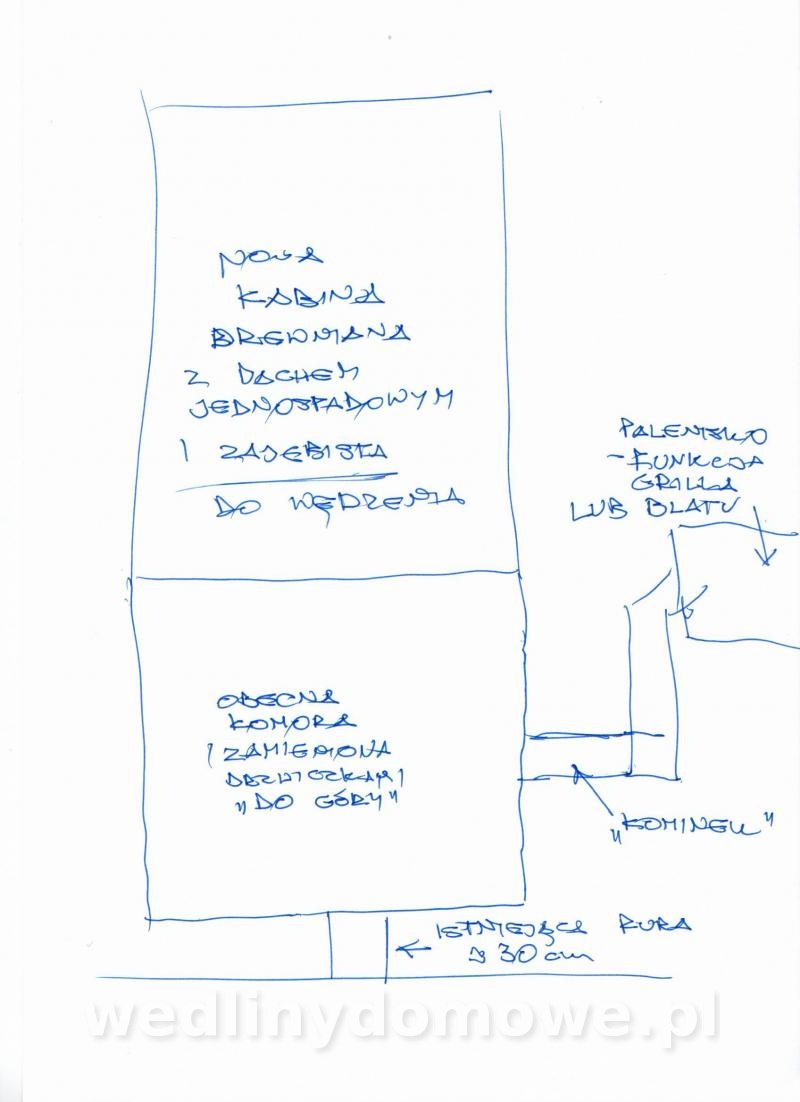 NOWA
KABINA
DREWNIANA
Z DACHEM
JEDNOSPADOWYM
I ZAJEBISTA
DO WĘDZENIA
PALENISKO
- FUNKCJA
GRILLA
LUB BLATU
OBECNA
KOMORA
/ ZAMIENIONA
DRZWICZKAMI
"DO GÓRY"
"KOMINEK"
← ISTNIEJĄCA RURA
30 cm
wedlinydomowe.pl